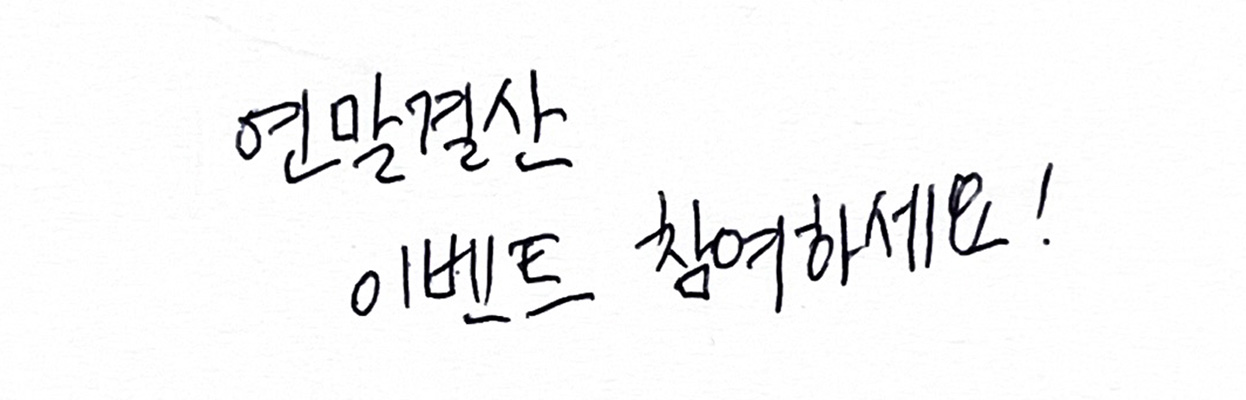 연말결산
이벤트 참여하세요!